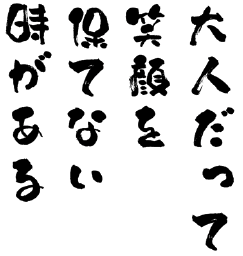 大人だって
笑顔を
保てない
時がある